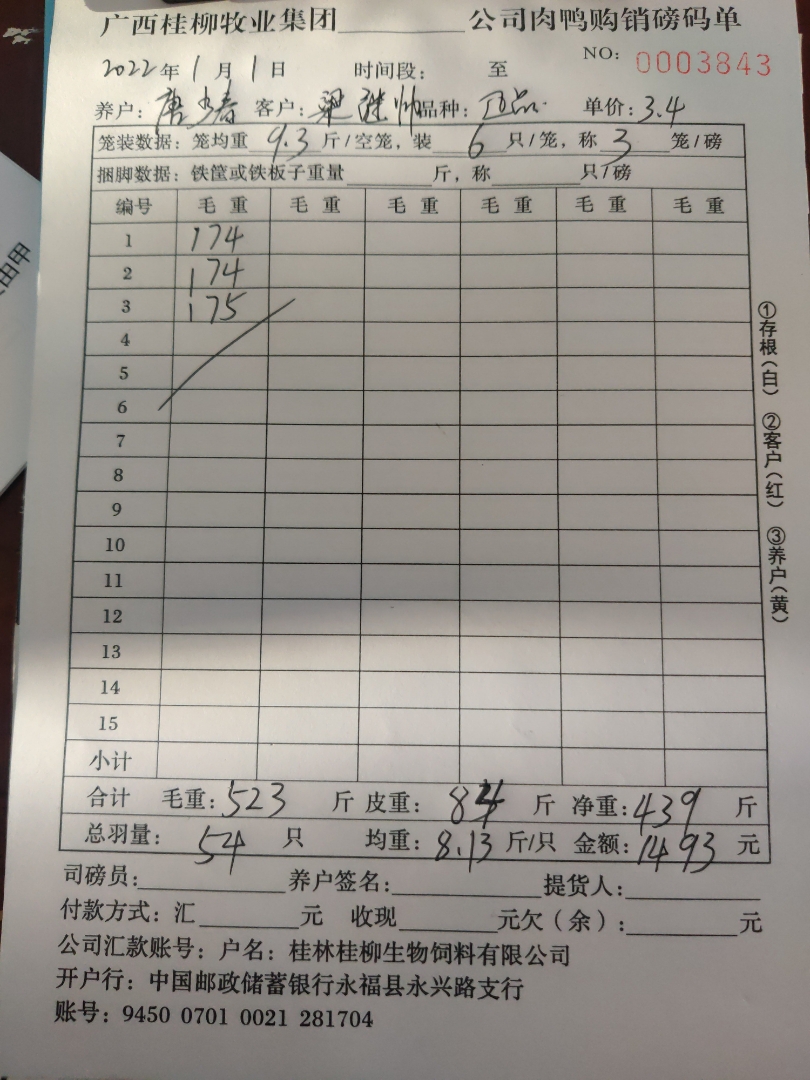 广西桂柳牧业集团________公司肉鸭购销磅码单
2022年1月1日 时间段: 至 NO: 0003843
养户: 唐 春 客户: 梁 帅 品种: 正品 单价: 3.4
笼装数据: 笼均重 9.3 斤/空笼, 装 6 只/笼, 称 3 笼/磅
捆脚数据: 铁筐或铁板子重量________斤, 称________只/磅
编号 毛重 毛重 毛重 毛重 毛重 毛重
1 174
2 174
3 175
4
5
6
7
8
9
10
11
12
13
14
15
小计
合计 毛重: 523 斤 皮重: 84 斤 净重: 439 斤
总羽量: 54 只 均重: 8.13 斤/只 金额: 1493 元
司磅员:________ 养户签名:________ 提货人:________
付款方式: 汇________元 收现________元欠(余):________元
公司汇款账号: 户名: 桂林桂柳生物饲料有限公司
开户行: 中国邮政储蓄银行永福县永兴路支行
账号: 9450 0701 0021 281704
①存根(白) ②客户(红) ③养户(黄)